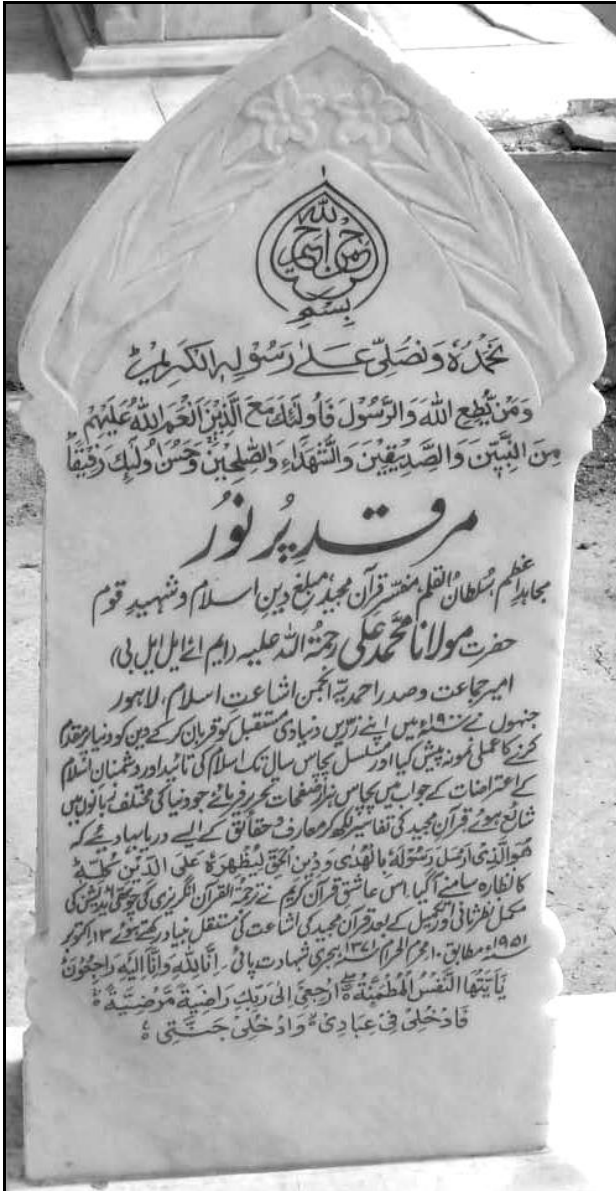 بسم الله الرحمن الرحيم
نحمدہٗ ونصلی علیٰ رسولہ الکریم
وَمَنْ یُّطِعِ اللہَ وَالرَّسُوْلَ فَاُولٰٓئِکَ مَعَ الَّذِیْنَ اَنْعَمَ اللہُ عَلَیْہِمْ
مِنَ النَّبِیّٖنَ وَالصِّدِّیْقِیْنَ وَالشُّہَدَآءِ وَالصّٰلِحِیْنَ وَحَسُنَ اُولٰٓئِکَ رَفِیْقًا ؕ
مرقدِ پُر نورُ
مجاہدِ اعظم، سُلطانُ القلم، مفسّرِ قرآن مجید، مبلغِ دینِ اسلام و شہیدِ قوم
حضرت مولانا محمد علی رحمۃُ اللہ علیہ (ایم اے ایل ایل بی)
امیر جماعت و صدر احمدیّہ انجمن اشاعت اسلام، لاہور
جنہوں نے ۱۹۰۰ء میں اپنے زرّیں دنیاوی مستقبل کو قربان کر کے دین کو دنیا پر مقدّم
کرنے کا عملی نمونہ پیش کیا اور مسلسل پچاس سال تک اسلام کی تائید اور دشمنان اسلام
کے اعتراضات کے جواب میں پچاس ہزار صفحات تحریر فرمائے جو دنیا کی مختلف زبانوں میں
شائع ہوئے قرآن مجید کی تفاسیر لکھ کر معارف و حقائق کے ایسے دریا بہا دیے کہ
ھُوَالَّذِیْ اَرْسَلَ رَسُوْلَہٗ بِالْھُدٰی وَدِیْنِ الْحَقِّ لِیُظْھِرَہٗ عَلَی الدِّیْنِ کُلِّہٖ
کا نظارہ سامنے آگیا۔ اس عاشقِ قرآن کریم نے ترجمۃُ القرآن انگریزی کی چوتھی ایڈیشن کی
مکمل نظرثانی اور تکمیل کے بعد قرآن مجید کی اشاعت کی مستقل بنیاد رکھتے ہوئے ۱۳، اکتوبر
۱۹۵۱ء مطابق ۱۰، محرم الحرام ۱۳۷۱ھ ہجری شہادت پائی۔ اِنَّا لِلہِ وَاِنَّآ اِلَیْہِ رَاجِعُوْنَ
یٰٓاَیَّتُھَا النَّفْسُ الْمُطْمَئِنَّۃُ ارْجِعِیْٓ اِلٰی رَبِّکِ رَاضِیَۃً مَّرْضِیَّۃً
فَادْخُلِیْ فِیْ عِبَادِیْ وَادْخُلِیْ جَنَّتِیْ